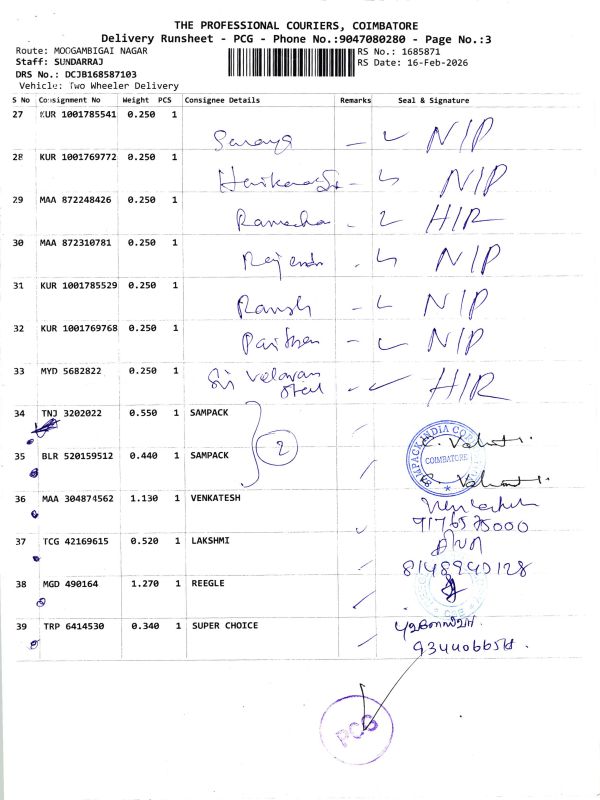 THE PROFESSIONAL COURIERS, COIMBATORE
Delivery Runsheet - PCG - Phone No.:9047080280 - Page No.:3
Route: MOOGAMBIGAI NAGAR
RS No.: 1685871
Staff: SUNDARRAJ
RS Date: 16-Feb-2026
DRS No.: DCJB168587103
Vehicle: Two Wheeler Delivery
S No Consignment No Weight PCS Consignee Details Remarks Seal & Signature
27 KUR 1001785541 0.250 1
N/P
28 KUR 1001769772 0.250 1
N/P
29 MAA 872248426 0.250 1
H/R
30 MAA 872310781 0.250 1
N/P
31 KUR 1001785529 0.250 1
N/P
32 KUR 1001769768 0.250 1
N/P
33 MYD 5682822 0.250 1
Sri Velavan Steel H/R
34 TNJ 3202022 0.550 1 SAMPACK
2
35 BLR 520159512 0.440 1 SAMPACK
COIMBATORE
36 MAA 304874562 1.130 1 VENKATESH
37 TCG 42169615 0.520 1 LAKSHMI
8148940128
38 MGD 490164 1.270 1 REEGLE
39 TRP 6414530 0.340 1 SUPER CHOICE
PCG